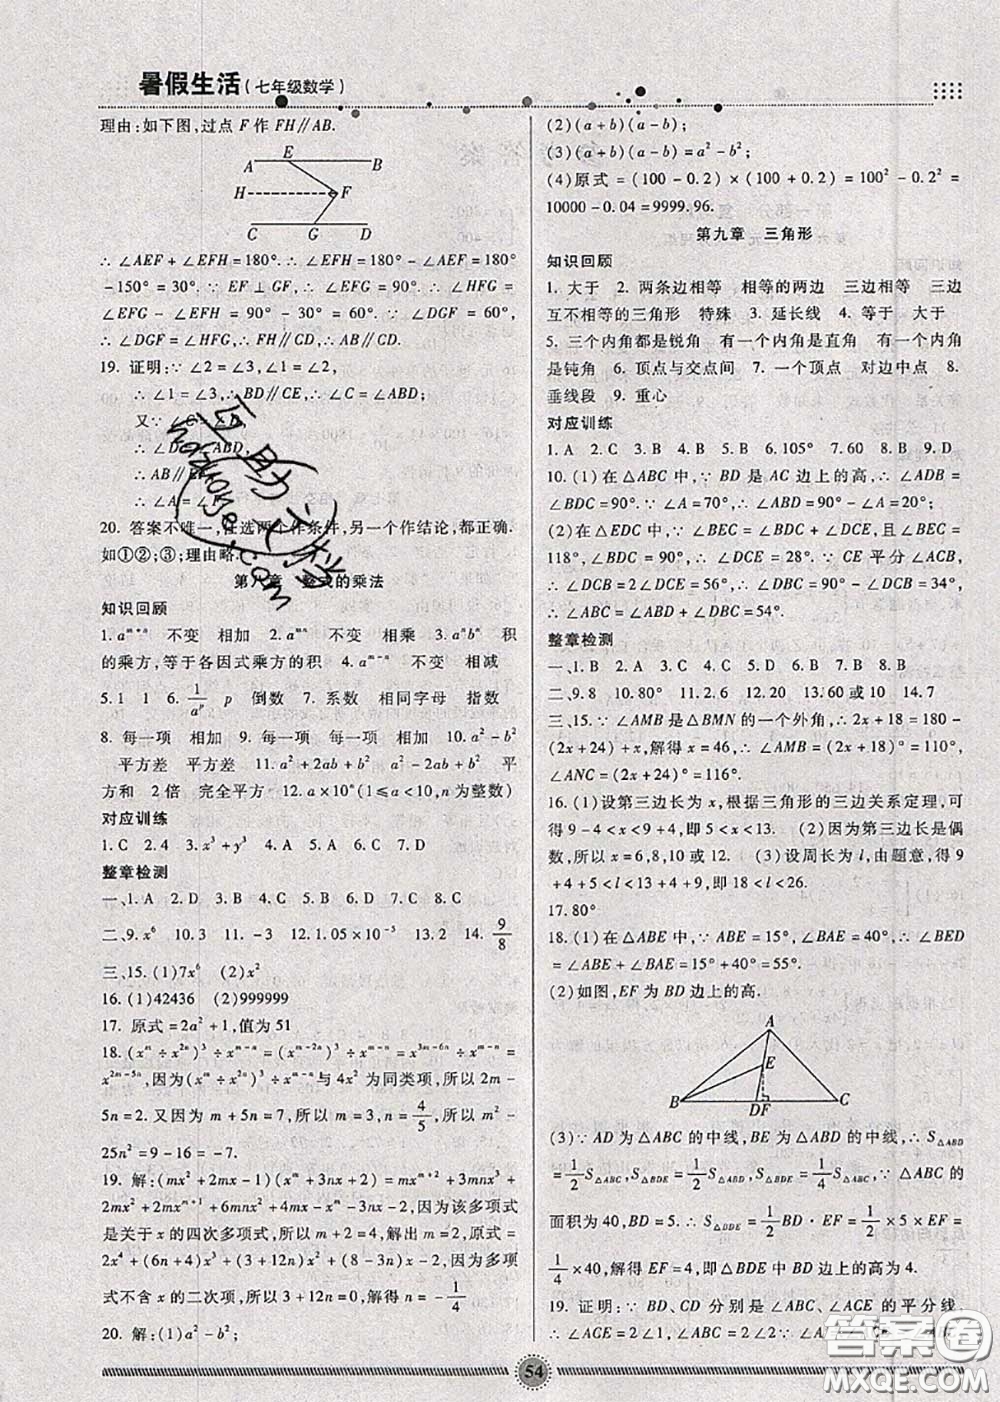 暑假生活(七年级数学)
理由:如下图,过点 F 作 FH∥AB.
E
A B
H F
C G D
∴ ∠AEF + ∠EFH = 180°. ∴ ∠EFH = 180° - ∠AEF = 180°
-150° = 30°. ∵ EF ⊥ GF, ∴ ∠EFG = 90°. ∴ ∠HFG =
∠EFG - ∠EFH = 90° - 30° = 60°. ∵ ∠DGF = 60°,
∴ ∠DGF = ∠HFG, ∴ FH∥CD, ∴ AB∥CD.
19. 证明:∵ ∠2 = ∠3, ∠1 = ∠2,
∴ ∠1 = ∠3, ∴ BD∥CE, ∴ ∠C = ∠ABD;
又∵ ∠C = ∠D,
∴ ∠D = ∠ABD,
∴ AB∥
∴ ∠A =
20. 答案不唯一,任选两个作条件,另一个作结论,都正确.
如①②;③;理由略.
第八章 整式的乘法
知识回顾
1. a^(m+n) 不变 相加 2. a^(mn) 不变 相乘 3. a^n b^n 积
的乘方,等于各因式乘方的积 4. a^(m-n) 不变 相减
5. 1 1 6. 1/a^p p 倒数 7. 系数 相同字母 指数
8. 每一项 相加 9. 每一项 每一项 相加 10. a² - b²
平方差 平方差 11. a² + 2ab + b² a² - 2ab + b² 平
方和 2 倍 完全平方 12. a × 10^n (1 ≤ a < 10, n 为整数)
对应训练
1. C 2. 4 3. x³ + y³ 4. C 5. D 6. C 7. D
整章检测
一、1. A 2. D 3. C 4. B 5. B 6. D 7. B 8. C
二、9. x⁶ 10. 3 11. -3 12. 1.05 × 10⁻⁵ 13. 2 14. 9/8
三、15. (1)7x⁶ (2)x²
16. (1)42436 (2)999999
17. 原式 = 2a² + 1,值为 51
18. (x^m ÷ x^(2n))³ ÷ x^(m-n) = (x^(m-2n))³ ÷ x^(m-n) = x^(3m-6n) ÷ x^(m-n) =
x^(2m-5n), 因为(x^m ÷ x^(2n))³ ÷ x^(m-n) 与 4x² 为同类项,所以 2m -
5n = 2. 又因为 m + 5n = 7, 所以 m = 3, n = 4/5, 所以 m² -
25n² = 9 - 16 = -7.
19. 解:(mx² + 2mx - 1)(x^m + 3nx + 2) = mx^(m+2) + 3mnx³ +
2mx² + 2mx^(m+1) + 6mnx² + 4mx - x^m - 3nx - 2,因为该多项式
是关于 x 的四次多项式,所以 m + 2 = 4, 解出 m = 2, 原式 =
2x⁴ + (6n + 4)x³ + (3 + 12n)x² + (8 - 3n)x - 2, 因为多项
式不含 x 的二次项,所以 3 + 12n = 0,得出 n = -1/4
20. 解:(1)a² - b²;
(2)(a + b)(a - b);
(3)(a + b)(a - b) = a² - b²;
(4)原式 = (100 - 0.2) × (100 + 0.2) = 100² - 0.2² =
10000 - 0.04 = 9999.96.
第九章 三角形
知识回顾
1. 大于 2. 两条边相等 相等的两边 三边相等 三边
互不相等的三角形 特殊 3. 延长线 4. 等于 大于
5. 三个内角都是锐角 有一个内角是直角 有一个内角
是钝角 6. 顶点与交点间 7. 一个顶点 对边中点 8.
垂线段 9. 重心
对应训练
1. A 2. C 3. B 4. A 5. B 6. 105° 7. 60 8. B 9. D
10. (1)在△ABC 中,∵ BD 是 AC 边上的高,∴ ∠ADB
= ∠BDC = 90°. ∵ ∠A = 70°, ∴ ∠ABD = 90° - ∠A = 20°;
(2)在△EDC 中,∵ ∠BEC = ∠BDC + ∠DCE, 且∠BEC =
118°, ∠BDC = 90°, ∴ ∠DCE = 28°. ∵ CE 平分∠ACB,
∴ ∠DCB = 2∠DCE = 56°, ∴ ∠DBC = 90° - ∠DCB = 34°,
∴ ∠ABC = ∠ABD + ∠DBC = 54°.
整章检测
一、1. B 2. A 3. C 4. C 5. D 6. B 7. B 8. B
二、9. 8 10. 80° 11. 2.6 12. 20 13. 60 或 10 14. 7
三、15. ∵ ∠AMB 是△BMN 的一个外角, ∴ 2x + 18 = 180 -
(2x + 24) + x, 解得 x = 46, ∴ ∠AMB = (2x + 18)° = 110°,
∠ANC = (2x + 24)° = 116°.
16. (1)设第三边长为 x,根据三角形的三边关系定理,可
得 9 - 4 < x < 9 + 4, 即 5 < x < 13. (2)因为第三边长是偶
数,所以 x = 6,8,10 或 12. (3)设周长为 l,由题意,得 9
+ 4 + 5 < l < 9 + 4 + 13, 即 18 < l < 26.
17. 80°
18. (1)在△ABE 中,∵ ABE = 15°, ∠BAE = 40°, ∴ ∠BED
= ∠ABE + ∠BAE = 15° + 40° = 55°.
(2)如图,EF 为 BD 边上的高.
A
E
B DF C
(3)∵ AD 为△ABC 的中线,BE 为△ABD 的中线,∴ S△ABD
= 1/2 S△ABC, S△BDE = 1/2 S△ABD, S△BDE = 1/4 S△ABC, ∵ △ABC 的
面积为 40, BD = 5, ∴ S△BDE = 1/2 BD · EF = 1/2 × 5 × EF =
1/4 × 40, 解得 EF = 4, 即△BDE 中 BD 边上的高为 4.
19. 证明:∵ BD、CD 分别是∠ABC、∠ACE 的平分线,
∴ ∠ACE = 2∠1, ∠ABC = 2∠2
54
互助文档
hazuoye.com
答案圈
MXQE.COM